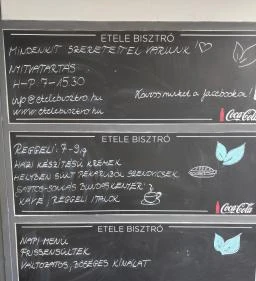 ETELE BISZTRÓ
MINDENKIT SZERETETTEL VÁRUNK!
NYITVATARTÁS
H-P: 7-15.30
info@etelebisztro.hu
Kövess minket a facebookon!
www.etelebisztro.hu
Coca-Cola
ETELE BISZTRÓ
REGGELI: 7-9
HÁZI KÉSZÍTÉSŰ KRÉMEK
HELYBEN SÜLT PÉKÁRUBÓL SZENDVICSEK
SAJTOS-SONKÁS BUNDÁSKENYÉR
KÁVÉ, REGGELI ITALOK
Coca-Cola
ETELE BISZTRÓ
NAPI MENÜ
FRISSENSÜLTEK
VÁLTOZATOS, BŐSÉGES KÍNÁLAT